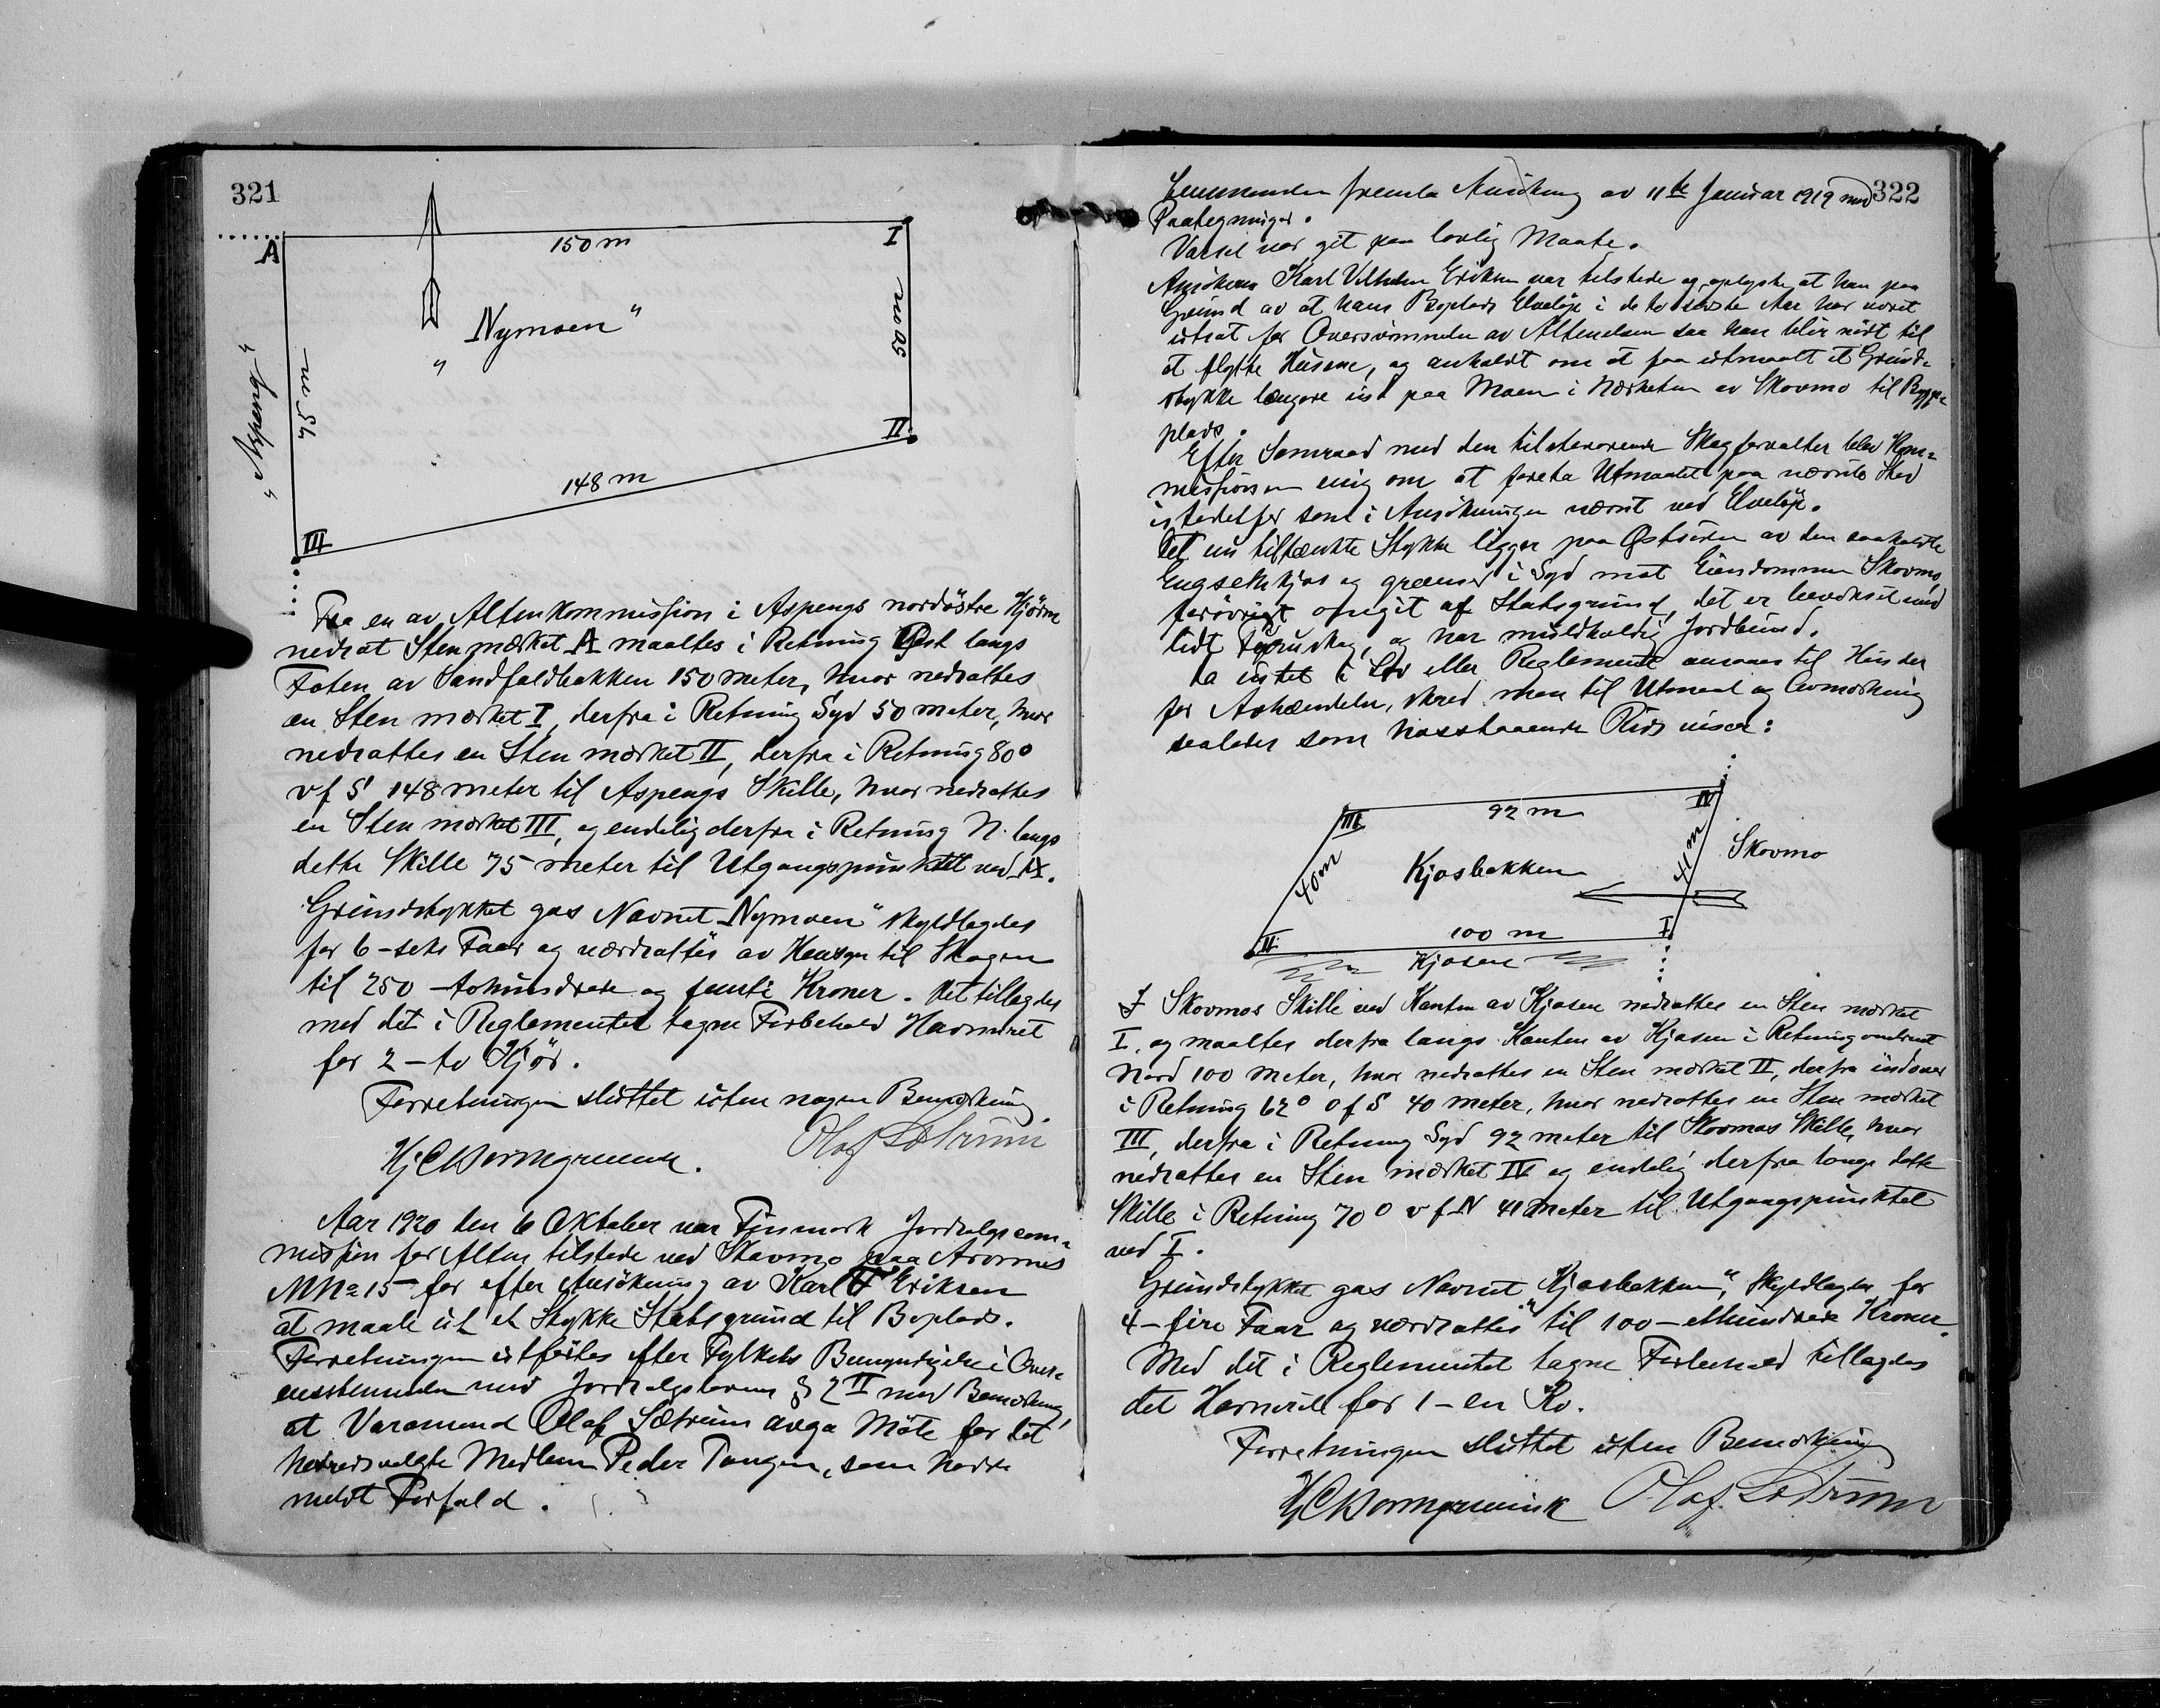 321
A
150 m
I
50 m
„ Nymoen “
„ Aspeng “
75 m
II
148 m
III
Fra en av Altenkommission i Aspengs nordöstre Hjörne
nedsat Sten mærket A maaltes i Retning Øst langs
Foten av Sandfaldbakken 150 meter, hvor nedsattes
en Sten mærket I, derfra i Retning Syd 50 meter, hvor
nedsattes en Sten mærket II, derfra i Retning 80°
v f S 148 meter til Aspengs Skille, hvor nedsattes
en Sten mærket III, og endelig derfra i Retning N. langs
dette Skille 75 meter til Utgangspunktet ved A.
Grundstykket gas Navnet „Nymoen“ skyldlagdes
for 6 - seks Fær og værdsattes av Hensyn til Skogen
til 250 - tohundrede og femti Kroner. Det tillagdes
med det i Reglementet tagne Forbehold Havneret
for 2 - to Kjör.
Forretningen sluttet uten nogen Bemærkning
Olaf Sætrum
Aar 1920 den 6 Oktober var Finmark Jordsalgscom-
mission for Alten tilstede ved Skovmo paa Aronnes
M No 15 for efter Ansökning av Karl Eriksen
at maale ut et Stykke Statsgrund til Boplads.
Forretningen utförtes efter Fylkets Bemyndigelse i Over-
ensstemmelse med Jordsalgsloven § 2 II med Bemærkning,
at Varamand Olaf Sætrum avga Möte for det
herredsvalgte Medlem Peder Tangen, som hadde
meldt Forfald.
322
fremla Ansökning av 11te Januar 1919 med
Paategninger.
Varsel var git paa lovlig Maate.
Ansökeren Karl Vilhelm Eriksen var tilstede og oplyste, at han paa
Grund av at hans Boplads Elvelöp i de to siste Aar har været
utsat for Oversvömmelse av Altenelven saa han blir nödt til
at flytte Husene, og anholdt om at faa utmaalt et Grund-
stykke længere ind paa Moen i Nærheten av Skovmo til Bygge-
plads.
Efter Samraad med den tilstedeværende Skogforvalter blev Kom-
missionen enig om at foreta Utmaalet paa nævnte Sted
istedetfor som i Ansökningen nævnt ved Elvelöp.
Det nu tiltænkte Stykke ligger paa Østsiden av den saakaldte
Kjos og grænser i Syd mot Eiendommen Skovmo,
forövrigt omgit af Statsgrund, det er bevokset med
lidt Furuskog, og har muldholdig Jordbund.
Da intet i Lov eller Reglement ansaaes til Hinder
for Avhændelse, skred man til Utmaal og Avmerkning
saaledes som hosstaaende Rids viser:
III
92 m
IV
40 m
Kjosbakken
41 m
Skovmo
II
100 m
I
Kjosen
I Skovmos Skille ved Kanten av Kjosen nedsattes en Sten mærket
I, og maaltes derfra langs Kanten av Kjosen i Retning omtrent
Nord 100 meter, hvor nedsattes en Sten mærket II, derfra indover
i Retning 62° o f S 40 meter, hvor nedsattes en Sten mærket
III, derfra i Retning Syd 92 meter til Skovmos Skille, hvor
nedsattes en Sten mærket IV og endelig derfra langs dette
Skille i Retning 70° v f N 41 meter til Utgangspunktet
ved I.
Grundstykket gas Navnet „Kjosbakken“, skyldlagdes for
4 - fire Fær og værdsattes til 100 - ethundrede Kroner.
Med det i Reglementet tagne Forbehold tillagdes
det Havneret for 1 - en Ko.
Forretningen sluttet uten Bemærkning
Olaf Sætrum